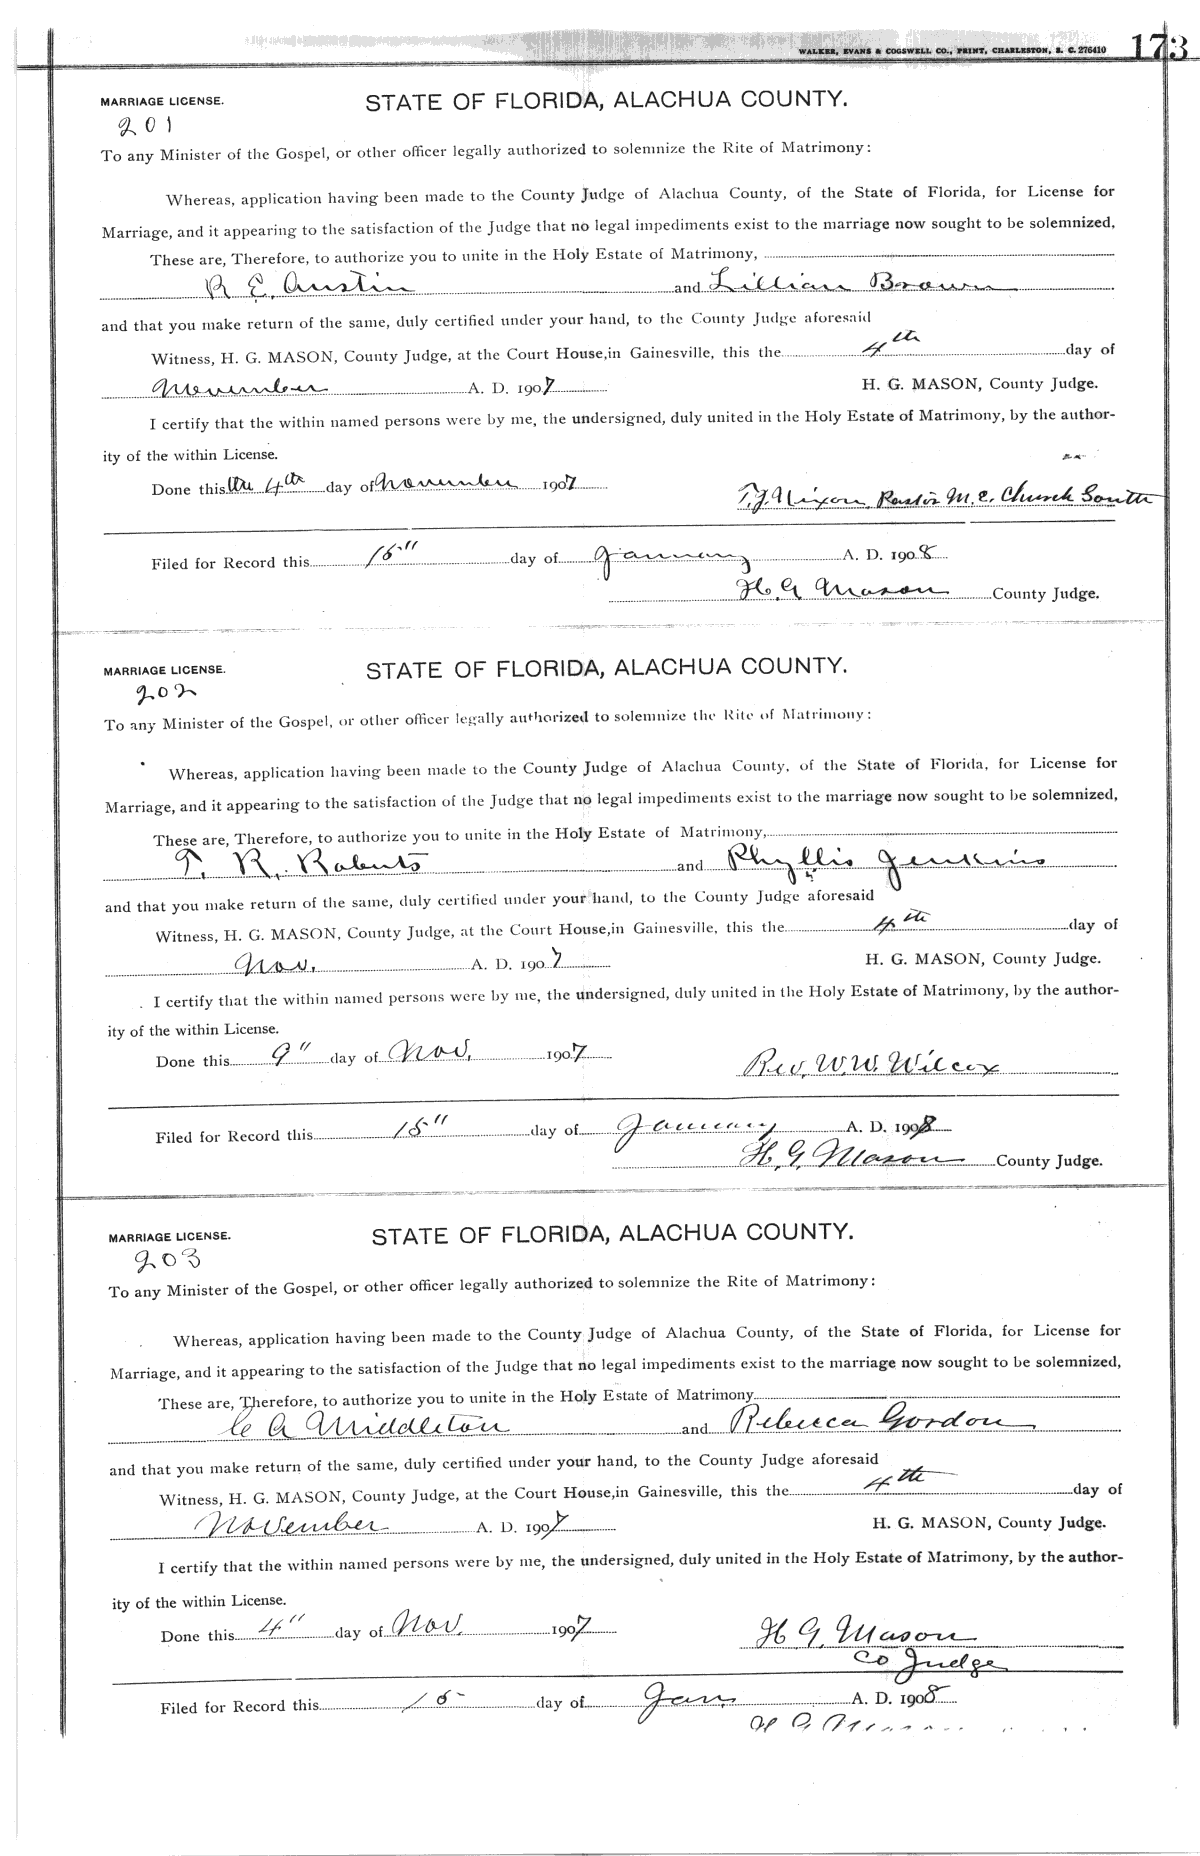 WALKER, EVANS & COGSWELL CO., PRINT, CHARLESTON, S. C. 276410 173
MARRIAGE LICENSE. STATE OF FLORIDA, ALACHUA COUNTY.
201
To any Minister of the Gospel, or other officer legally authorized to solemnize the Rite of Matrimony:
Whereas, application having been made to the County Judge of Alachua County, of the State of Florida, for License for
Marriage, and it appearing to the satisfaction of the Judge that no legal impediments exist to the marriage now sought to be solemnized,
These are, Therefore, to authorize you to unite in the Holy Estate of Matrimony,
R E. Austin and Lillian Brown
and that you make return of the same, duly certified under your hand, to the County Judge aforesaid
Witness, H. G. MASON, County Judge, at the Court House, in Gainesville, this the 4th day of
November A. D. 1907 H. G. MASON, County Judge.
I certify that the within named persons were by me, the undersigned, duly united in the Holy Estate of Matrimony, by the author-
ity of the within License.
Done this the 4th day of November 1907
T. J. Nixon, Pastor M. E. Church South
Filed for Record this 15" day of January A. D. 1908
H. G Mason County Judge.
MARRIAGE LICENSE. STATE OF FLORIDA, ALACHUA COUNTY.
202
To any Minister of the Gospel, or other officer legally authorized to solemnize the Rite of Matrimony:
Whereas, application having been made to the County Judge of Alachua County, of the State of Florida, for License for
Marriage, and it appearing to the satisfaction of the Judge that no legal impediments exist to the marriage now sought to be solemnized,
These are, Therefore, to authorize you to unite in the Holy Estate of Matrimony,
T. R. Roberts and Phyllis Jenkins
and that you make return of the same, duly certified under your hand, to the County Judge aforesaid
Witness, H. G. MASON, County Judge, at the Court House, in Gainesville, this the 4th day of
Nov. A. D. 1907 H. G. MASON, County Judge.
I certify that the within named persons were by me, the undersigned, duly united in the Holy Estate of Matrimony, by the author-
ity of the within License.
Done this 9" day of Nov. 1907 Rev. W. W. Wilcox
Filed for Record this 15" day of January A. D. 1908
H. G. Mason County Judge.
MARRIAGE LICENSE. STATE OF FLORIDA, ALACHUA COUNTY.
203
To any Minister of the Gospel, or other officer legally authorized to solemnize the Rite of Matrimony:
Whereas, application having been made to the County Judge of Alachua County, of the State of Florida, for License for
Marriage, and it appearing to the satisfaction of the Judge that no legal impediments exist to the marriage now sought to be solemnized,
These are, Therefore, to authorize you to unite in the Holy Estate of Matrimony
C A Middleton and Rebecca Gordon
and that you make return of the same, duly certified under your hand, to the County Judge aforesaid
Witness, H. G. MASON, County Judge, at the Court House, in Gainesville, this the 4th day of
November A. D. 1907 H. G. MASON, County Judge.
I certify that the within named persons were by me, the undersigned, duly united in the Holy Estate of Matrimony, by the author-
ity of the within License.
Done this 4" day of Nov. 1907 H G. Mason
Co Judge
Filed for Record this 15 day of Jan. A. D. 1908
H G Mason